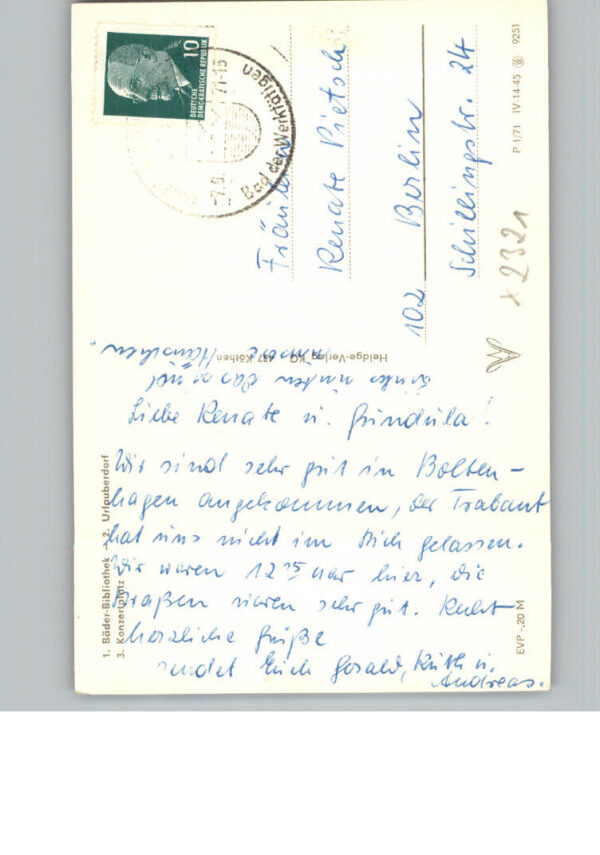 10
DEUTSCHE
DEMOKRATISCHE REPUBLIK
-7.9. 71-15
Bad der Werktätigen
Fräulein
Renate Pietsch
102 Berlin
Schillingstr. 24
P 1/71 IV-14-45 9251
x 2321
Heldge-Verlag KG 437 Köthen
unten das
Liebe Renate u. Gundula!
Wir sind sehr gut in Bolten-
hagen angekommen, der Trabant
hat uns nicht im Stich gelassen.
Wir waren 12 15 Uhr hier, die
Straßen waren sehr gut. Recht
herzliche Grüße
sendet Euch Gerald, Ruth u.
Andreas.
1. Bäder-Bibliothek 2. Urlauberdorf
3. Konzertplatz
EVP -,20 M